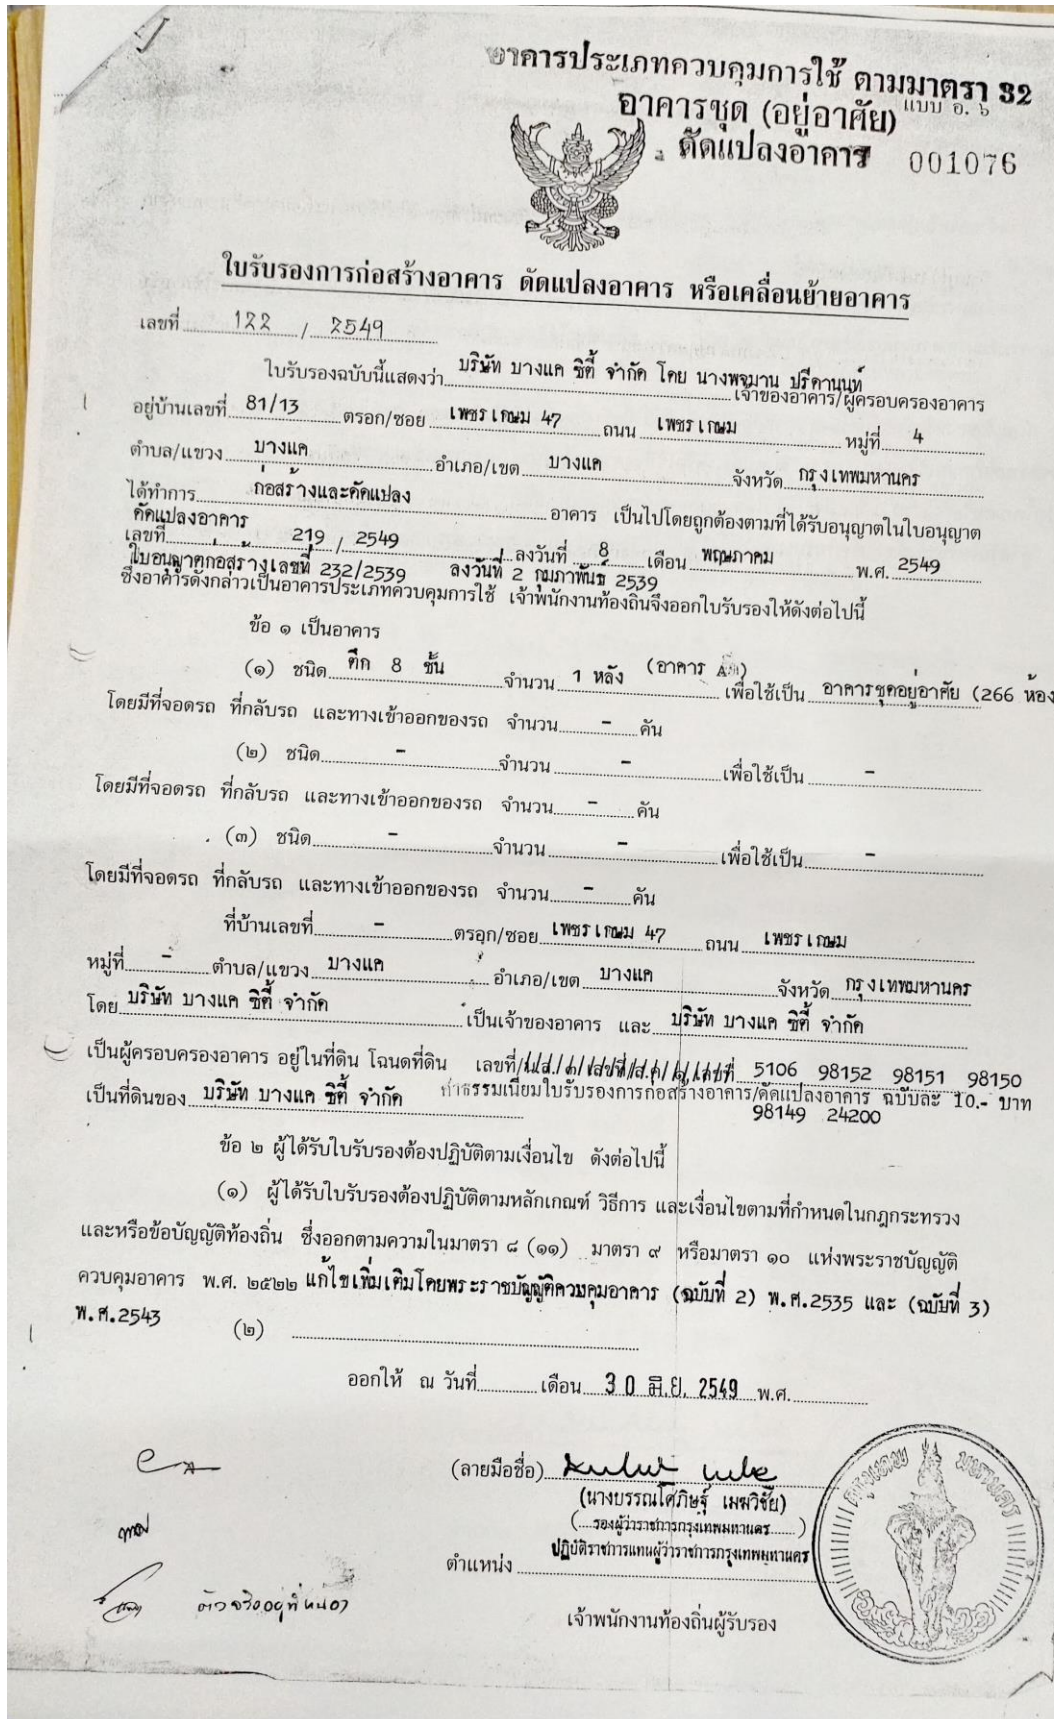 อาคารประเภทควบคุมการใช้ ตามมาตรา 32
แบบ อ. ๖
อาคารชุด (อยู่อาศัย)
ดัดแปลงอาคาร 001076
ใบรับรองการก่อสร้างอาคาร ดัดแปลงอาคาร หรือเคลื่อนย้ายอาคาร
เลขที่ 122 / 2549
ใบรับรองฉบับนี้แสดงว่า บริษัท บางแค ซิตี้ จำกัด โดย นางพจมาน ปรีดานนท์ เจ้าของอาคาร/ผู้ครอบครองอาคาร
อยู่บ้านเลขที่ 81/13 ตรอก/ซอย เพชรเกษม 47 ถนน เพชรเกษม หมู่ที่ 4
ตำบล/แขวง บางแค อำเภอ/เขต บางแค จังหวัด กรุงเทพมหานคร
ได้ทำการ ก่อสร้างและดัดแปลง อาคาร เป็นไปโดยถูกต้องตามที่ได้รับอนุญาตในใบอนุญาต
ดัดแปลงอาคาร
เลขที่ 219 / 2549 ลงวันที่ 8 เดือน พฤษภาคม พ.ศ. 2549
ใบอนุญาตก่อสร้างเลขที่ 232/2539 ลงวันที่ 2 กุมภาพันธ์ 2539
ซึ่งอาคารดังกล่าวเป็นอาคารประเภทควบคุมการใช้ เจ้าพนักงานท้องถิ่นจึงออกใบรับรองให้ดังต่อไปนี้
ข้อ ๑ เป็นอาคาร
(๑) ชนิด ตึก 8 ชั้น จำนวน 1 หลัง (อาคาร A) เพื่อใช้เป็น อาคารชุดอยู่อาศัย (266 ห้อง
โดยมีที่จอดรถ ที่กลับรถ และทางเข้าออกของรถ จำนวน - คัน
(๒) ชนิด - จำนวน - เพื่อใช้เป็น -
โดยมีที่จอดรถ ที่กลับรถ และทางเข้าออกของรถ จำนวน - คัน
(๓) ชนิด - จำนวน - เพื่อใช้เป็น -
โดยมีที่จอดรถ ที่กลับรถ และทางเข้าออกของรถ จำนวน - คัน
ที่บ้านเลขที่ - ตรอก/ซอย เพชรเกษม 47 ถนน เพชรเกษม
หมู่ที่ - ตำบล/แขวง บางแค อำเภอ/เขต บางแค จังหวัด กรุงเทพมหานคร
โดย บริษัท บางแค ซิตี้ จำกัด เป็นเจ้าของอาคาร และ บริษัท บางแค ซิตี้ จำกัด
เป็นผู้ครอบครองอาคาร อยู่ในที่ดิน โฉนดที่ดิน เลขที่ 5106 98152 98151 98150
เป็นที่ดินของ บริษัท บางแค ซิตี้ จำกัด ค่าธรรมเนียมใบรับรองการก่อสร้างอาคาร/ดัดแปลงอาคาร ฉบับละ 10.- บาท
98149 24200
ข้อ ๒ ผู้ได้รับใบรับรองต้องปฏิบัติตามเงื่อนไข ดังต่อไปนี้
(๑) ผู้ได้รับใบรับรองต้องปฏิบัติตามหลักเกณฑ์ วิธีการ และเงื่อนไขตามที่กำหนดในกฎกระทรวง
และหรือข้อบัญญัติท้องถิ่น ซึ่งออกตามความในมาตรา ๘ (๑๑) มาตรา ๙ หรือมาตรา ๑๐ แห่งพระราชบัญญัติ
ควบคุมอาคาร พ.ศ. ๒๕๒๒ แก้ไขเพิ่มเติมโดยพระราชบัญญัติควบคุมอาคาร (ฉบับที่ 2) พ.ศ.2535 และ (ฉบับที่ 3)
พ.ศ.2543
(๒)
ออกให้ ณ วันที่ เดือน 30 มิ.ย. 2549 พ.ศ.
(ลายมือชื่อ)
(นางบรรณโศภิษฐ์ เมฆวิชัย)
(รองผู้ว่าราชการกรุงเทพมหานคร)
ปฏิบัติราชการแทนผู้ว่าราชการกรุงเทพมหานคร
ตำแหน่ง
ตัวจริงอยู่ที่
เจ้าพนักงานท้องถิ่นผู้รับรอง
กรุงเทพ มหานคร